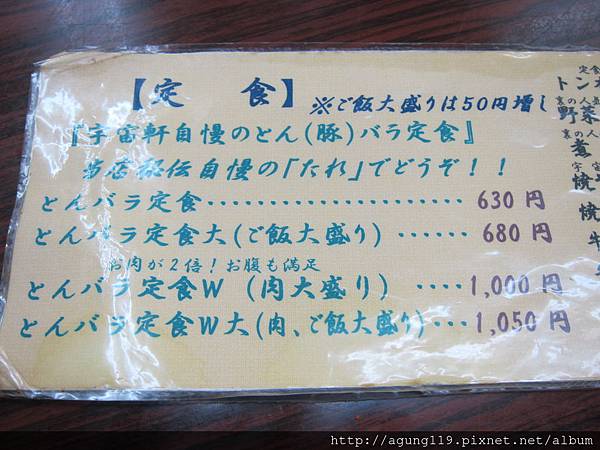 【定 食】 ※ご飯大盛りは50円増し
『宇富軒自慢のとん(豚)バラ定食』
当店秘伝自慢の「たれ」でどうぞ！！
とんバラ定食‥‥‥‥‥‥‥‥‥‥ 630 円
とんバラ定食大(ご飯大盛り) ‥‥‥ 680 円
お肉が2倍！お腹も満足
とんバラ定食W (肉大盛り) ‥‥1,000 円
とんバラ定食W大(肉、ご飯大盛り)‥‥1,050 円
http://agung119.pixnet.net/album